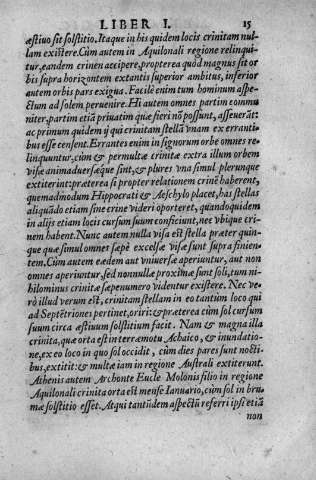 LIBER I. 15
æstiuo sit solstitio. Itaque in his quidem locis crinitam nul-
lam existere. Cùm autem in Aquilonali regione relinqui-
tur, eandem crinen accipere, propterea quòd magnus sit or
bis supra horizontem extantis superior ambitus, inferior
autem orbis pars exigua. Facilè enim tum hominum aspe-
ctum ad solem peruenire. Hi autem omnes partim commu
niter, partim etiã priuatim quæ fieri nõ possunt, asseuerãt:
ac primum quidem ij qui crinitam stellã vnam ex erranti-
bus esse censent. Errantes enim in signorum orbe omnes re-
linquuntur, cùm & permultæ crinitæ extra illum orbem
visæ animaduersæque sint, & plures vna simul plerunque
extiterint: præterea si propter relationem crinē haberent,
quemadmodum Hippocrati & Aeschylo placet, has stellas
aliquãdo etiam sine crine videri oporteret, quandoquidem
in alijs etiam locis cursum suum conficiunt, nec vbique cri-
nem habent. Nunc autem nulla visa est stella præter quin-
que quæ simul omnes sæpe excelsæ visæ sunt supra finien-
tem. Cùm autem eædem aut vniuersæ aperiuntur, aut non
omnes aperiuntur, sed nonnullæ proximæ sunt soli, tum ni-
hilominus crinitæ sæpenumero videntur existere. Nec ve-
rò illud verum est, crinitam stellam in eo tantùm loco qui
ad Septētriones pertinet, oriri: & præterea cùm sol cursum
suum circa æstiuum solstitium facit. Nam & magna illa
crinita, quæ orta est in terræmotu Achaico, & inundatio-
ne, ex eo loco in quo sol occidit, cùm dies pares sunt nocti-
bus, extitit: & multæ iam in regione Australi extiterunt.
Athenis autem Archonte Eucle Molonis filio in regione
Aquilonali crinita orta est mense Ianuario, cùm sol in bru
mæ solstitio esset. Atqui tantũdem aspectũ referri ipsi etiã
non